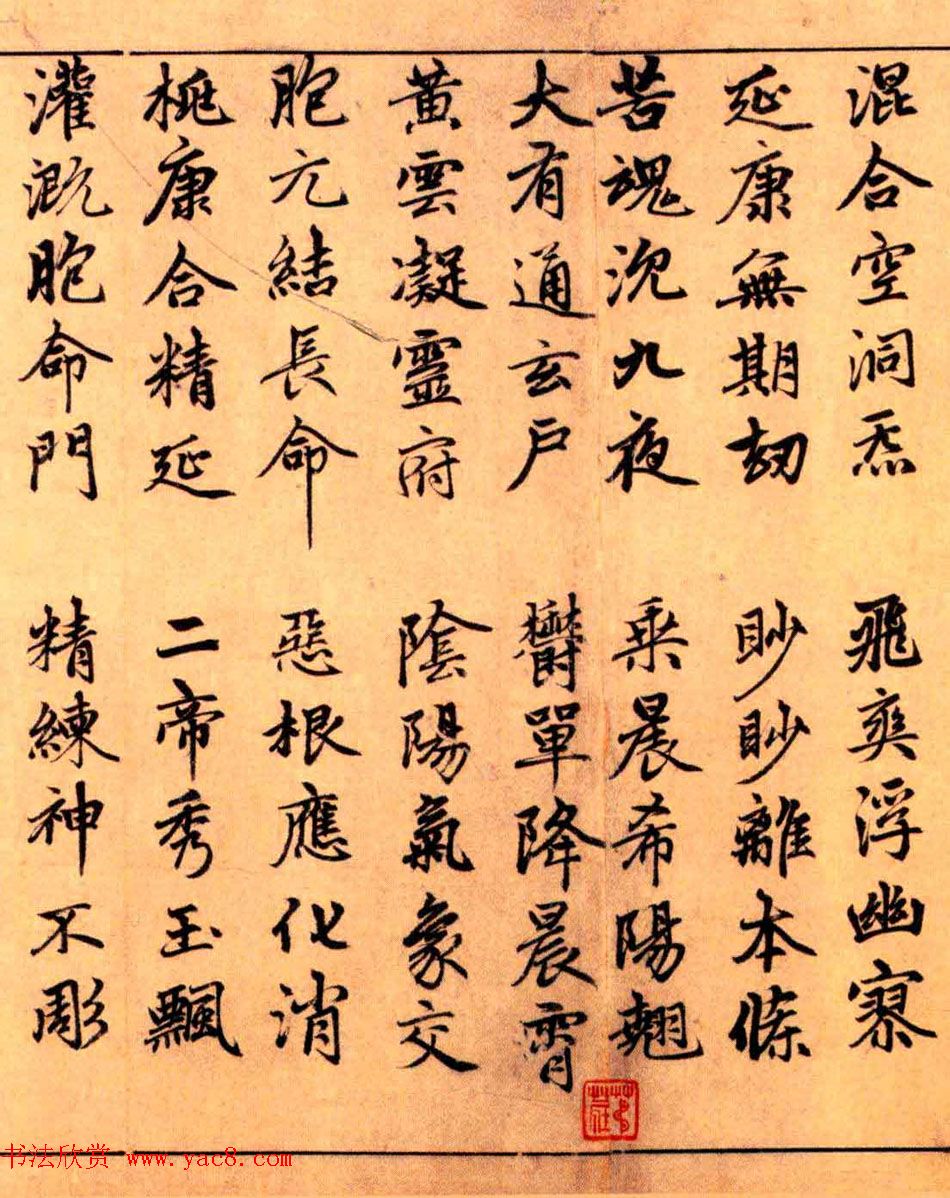 混合空洞炁 飛爽浮幽寥
延康無期劫 眇眇離本條
苦魂沉九夜 乘晨希陽翹
大有通玄户 鬱單降晨霄
黄雲凝靈府 陰陽氣象交
胞元結長命 惡根應化消
桃康合精延 二帝秀玉飄
灌溉胞命門 精練神不彫
书法欣赏 www.yac8.com